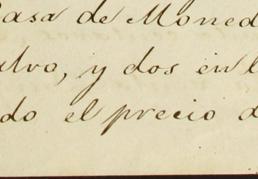 Casa de Moned
alvo, y dos en l
do el precio d